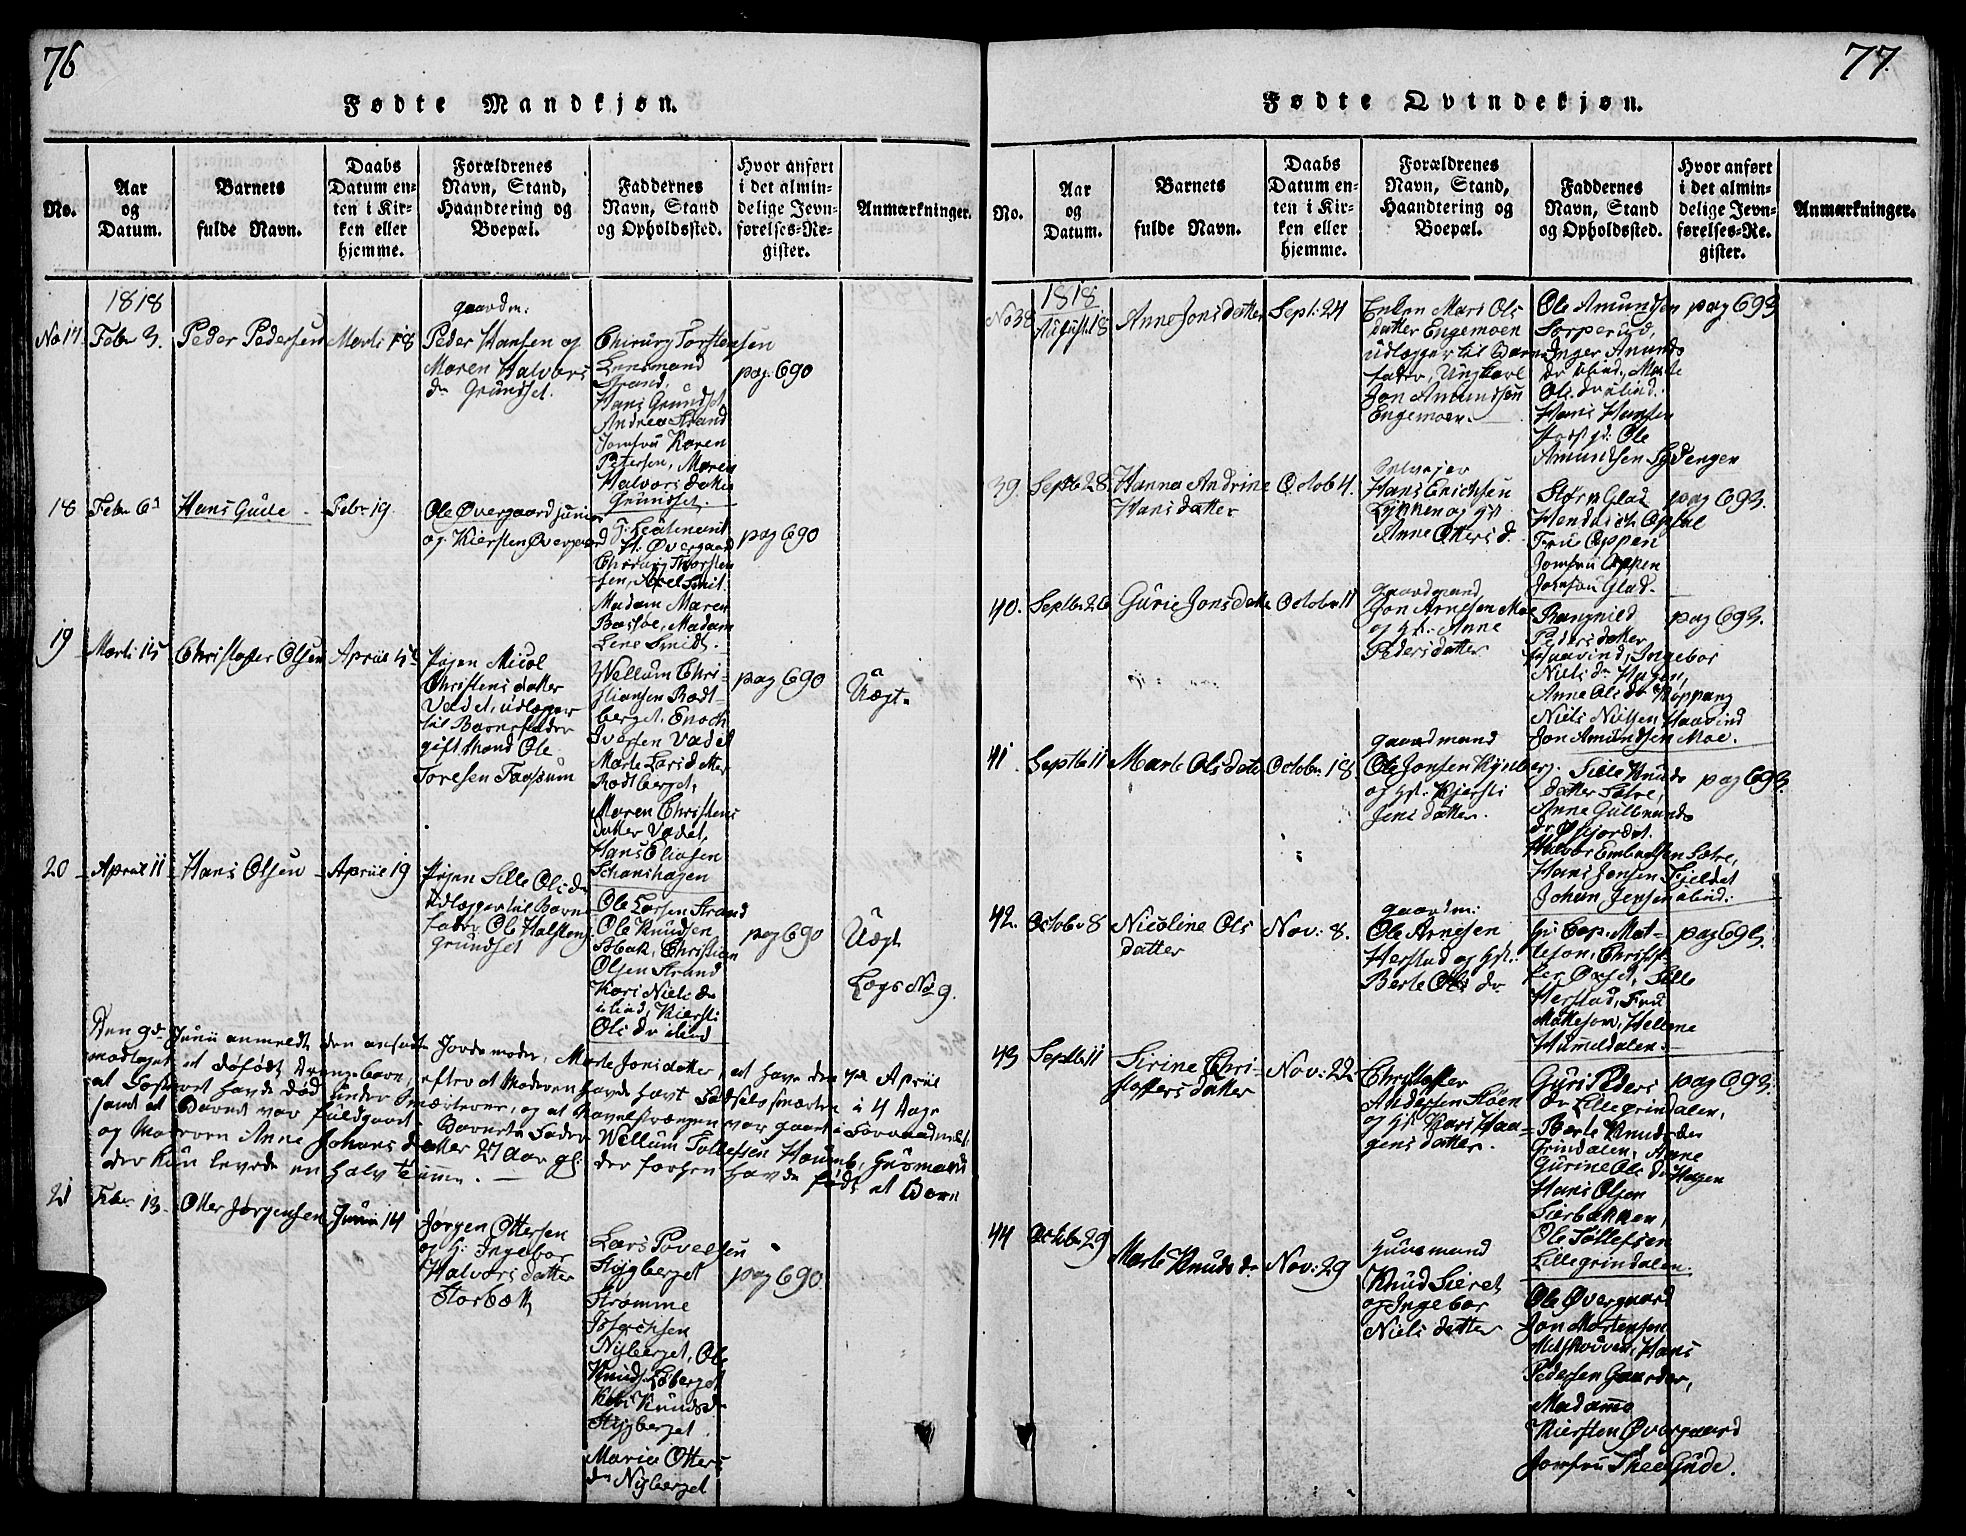 76
Fødte Mandkjøn.
No.
Aar
og
Datum.
Barnets
fulde Navn.
Daabs
Datum en-
ten i Kir-
ken eller
hjemme.
Forældrenes
Navn, Stand,
Haandtering og
Boepæl.
Faddernes
Navn, Stand
og Opholdssted.
Hvor anført
i det almin-
delige Jevn-
førelses-Re-
gister.
Anmærkninger.
1818
No 17.
Febr 3.
Peder Pedersen
Marti 18
gaardm:
Peder Hansen og
Maren Halvors
dr Grundset.
Chirurg Torstensen
Lensmand
Strand,
Hans Grundset
Andrea Strand
Jomfru Karen
Petersen, Maren
Halvors datter
Grundset.
pag. 690
18
Febr 6
Hans Gude
Febr 19.
Ole Øvergaard junior
og Kiersten Øvergaard
H. Øvergaard
Chirurg Thorsten-
sen, Axel Smit.
Madam Maren
Bassøe, Madam
Lene Smidt.
pag 690
19
Marti 15
Christopher Olsen
Aprill 5
Pigen
Christens datter
Vadet, udlægger
til Barnefader
gift Mand Ole
Toresen
Wellum Chri-
stiansen Rødt-
berget, Enoch
Iversen Vadet
Marte Larsdatter
Rodtberget,
Maren Christens
datter Vadet,
Hans Eliasen
Schanshagen
pag 690
Uægt.
20
April 11
Hans Olsen
April 19
Pigen Sille Ols dr
udlægger til Barne-
fader Ole Halsten
grundset
Ole Larsen Strand
Ole Knudsen
Christian
Olsen Strand
Kari Niels dr
ibid, Kiersti
Ols dr ibid
pag 690
Uægt
Lægs No 9.
Den 9de Junii anmeldte den ansatte Jordemoder, Marte Jonsdatter, at have den 7de April
modtaget et dødfødt Drengebarn, efter at Moderen havde havt Fødselssmerter i 4 Dage
at Fosteret havde død under Smerterne, og at Navelstrængen var gaaet i Forraadnelse
samt at Barnet var fuldgaaet. Barnets Fader Wellum Tollefsen Haumb, Huusmand
og Moderen Anne Johans datter 27 Aar gl: der forhen havde født et Barn
der kun levede en halv Time.
21
Febr. 13.
Otter Jørgensen
Junii 14
Jørgen Ottersen
og H: Ingebor
Halvors datter
Storbæk
Lars Povelsen
Stygberget
Strømme
Nyberget, Ole
Knuds. Løberget
Kari Knudsdr
Stygberget.
Maria Otters
dr Nyberget
pag 690.
77.
Fødte Qvindekjøn.
No.
Aar
og
Datum.
Barnets
fulde Navn.
Daabs
Datum en-
ten i Kir-
ken eller
hjemme.
Forældrenes
Navn, Stand,
Haandtering og
Boepæl.
Faddernes
Navn, Stand
og Opholdssted.
Hvor anført
i det almin-
delige Jevn-
førelses-Re-
gister.
Anmærkninger.
1818
No 38
August 18
Anne Jonsdatter
Sept: 24
Enken Mari Ols
datter Engemoen
udlægger til Barne-
fader, Ungkarl
Jon Amundsen
Engemoen.
Ole Amundsen
Sorperud,
Inger Amunds
dr ibid, Marte
Ols dr ibid.
Hans Hansen
Ole
Amundsen Lydengen
pag 693
39.
Septbr 28.
Hanna Andrine
Hansdatter
Octob 4.
Selvejer
Hans Erichsen
Lykken og hst
Anne Otters d.
Størn Glad
Hendrich Oppen
Fru Oppen
Jomfru Oppen
Jomfru Glad.
pag 693.
40.
Septbr 26
Gurie Jonsdatter
October 11
gaardmand
Jon Arnesen Moe
og hst: Anne
Pedersdatter
Rangnild
Peders datter
Haavind, Ingebor
Niels dr Hagen,
Anne Ols dr Koppang
Niels Nielsen Haavind
Jon Amundsen Moe.
pag 693.
41.
Septbr 11
Marte Olsdatter
Octobr. 18
gaardmand
Ole Jonsen Kynberg.
og hst. Kjersti
Jens datter.
Sille Knuds
datter Sætre,
Anne Gulbrands
dr Øfjordet.
Halvor Embretsen Sætre,
Hans Jensen Fjeldet
Johan Jensen ibid:
pag 693.
42.
Octobr 8
Nicoline Ols
datter
Nov: 8.
gaardm:
Ole Arnesen
Herstad og hst.:
Berte Ols dr
Hr: Cap. Mat-
teson, Christof-
fer Sille
Herstad, Fru
Matteson, Hellene
Hummeldalen.
pag 693.
43
Septbr 11
Sirine Chri-
stoffers datter
Nov: 22.
Christoffer
Andersen Støen
og hst. Kari Haa-
gens datter.
Guri Peders
dr Lillegrindalen,
Berte Knuds dr
Grindalen, Anne
Gurine Ols dr Hagen
Hans Olsen
Sierbakken,
Ole Tollefsen
Lillegrindalen.
pag 693.
44
Octobr 29
Marte Knuds dr.
Nov: 29
Huusmand
Knud Sieret
og Ingebor
Niels datter
Ole Øvergaard
Jon Mortensen
Midtskoven, Hans
Pedersen Gaarder,
Madamme
Kiersten Øvergaard
Jomfru Thea Gude.